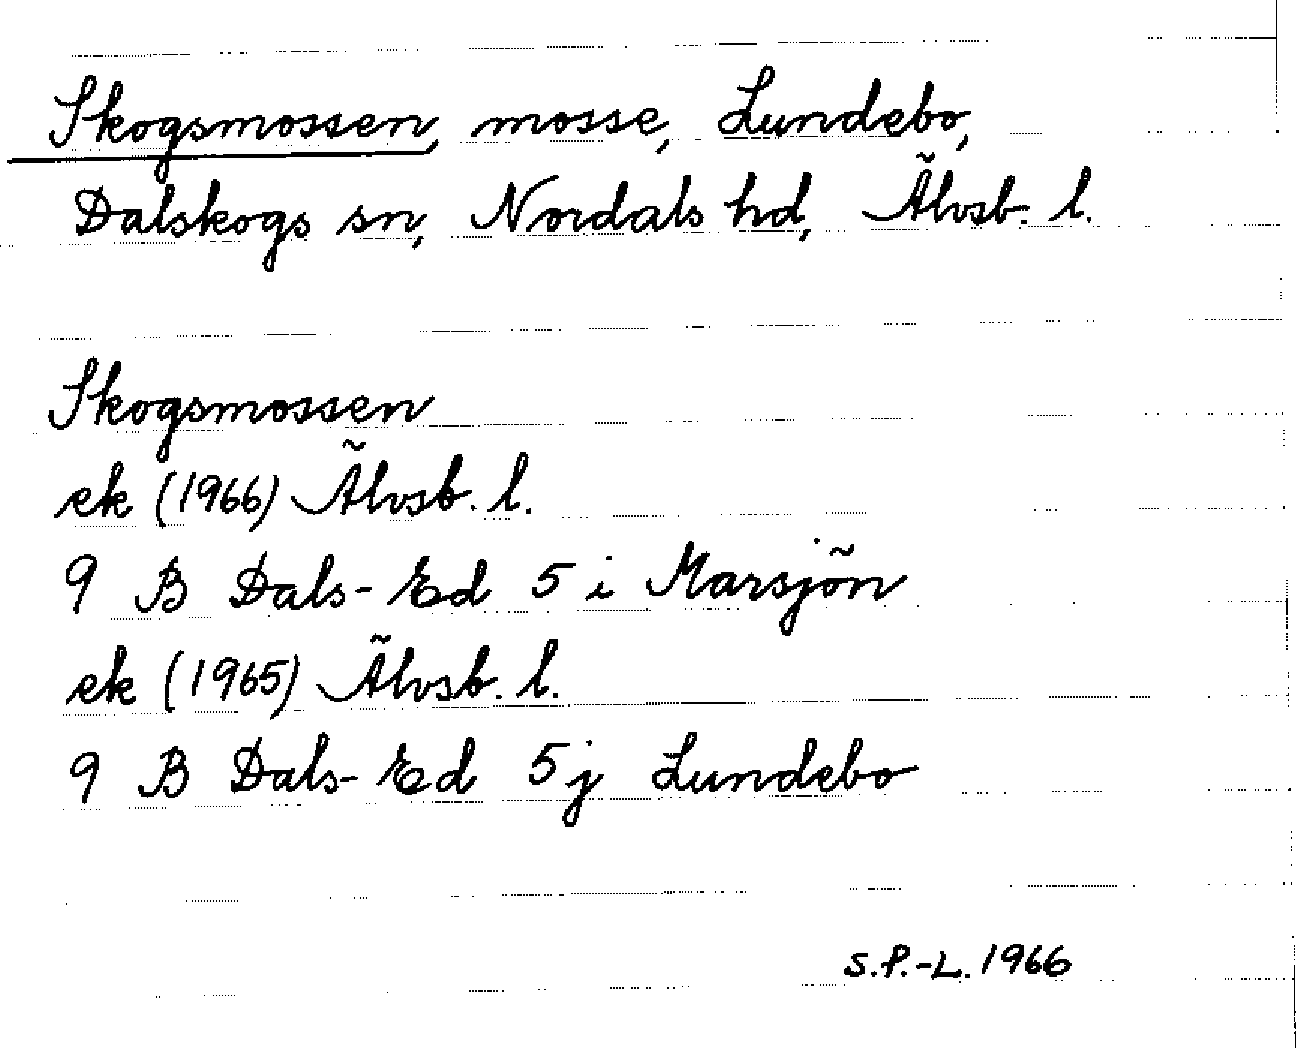 Skogsmossen, mosse, Lundebo,
Dalskogs sn, Nordals hd, Älvsb. l.
Skogsmossen
ek (1966) Älvsb. l.
9 B Dals-Ed 5 i Marsjön
ek (1965) Älvsb. l.
9 B Dals-Ed 5 j Lundebo
S.P.-L. 1966